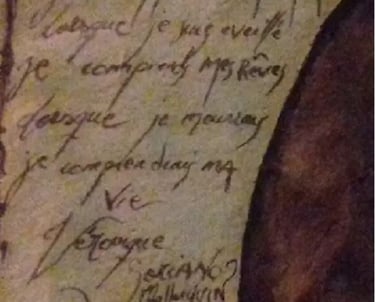 Lorsque je suis eveillé
je comprends mes Rêves
Lorsque je mourrais
je comprendrais MA
Vie